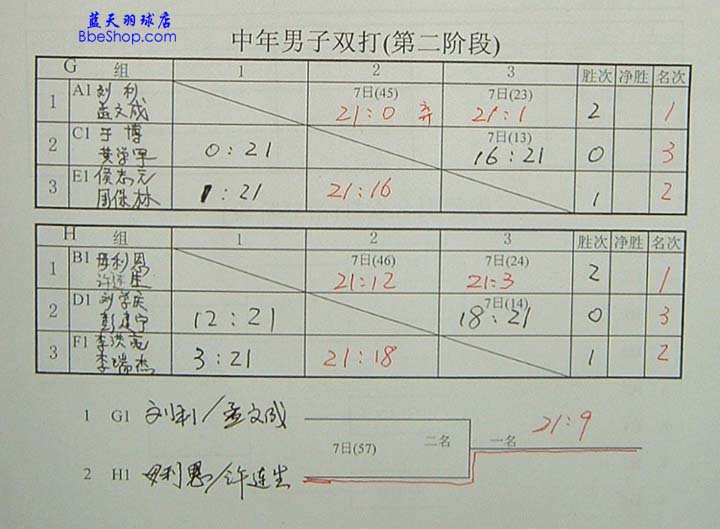 蓝天羽球店
BbeShop.com
中年男子双打(第二阶段)
G 组 1 2 3 胜次 净胜 名次
1 A1 刘利 孟文成 7日(45) 21:0 弃 7日(23) 21:1 2 1
2 C1 于博 黄学军 0:21 7日(13) 16:21 0 3
3 E1 侯志元 周保林 1:21 21:16 1 2
H 组 1 2 3 胜次 净胜 名次
1 B1 毋利恩 许连生 7日(46) 21:12 7日(24) 21:3 2 1
2 D1 刘学庆 彭建宁 12:21 7日(14) 18:21 0 3
3 F1 李洪亮 李瑞杰 3:21 21:18 1 2
1 G1 刘利/孟文成
7日(57) 二名 一名 21:9
2 H1 毋利恩/许连生